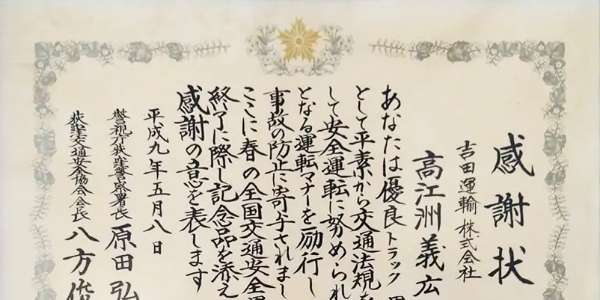 感謝状
吉田運輸株式会社
高江洲義広
あなたは優良トラック
として平素から交通法規を
して安全運転に努められ
となる運転マナーを励行し
事故の防止に寄与されまし
ここに春の全国交通安全運
終了に際し記念品を添え
感謝の意を表します
平成九年五月八日
警視庁荻窪警察署長 原田弘
荻窪交通安全協会会長 八方俊